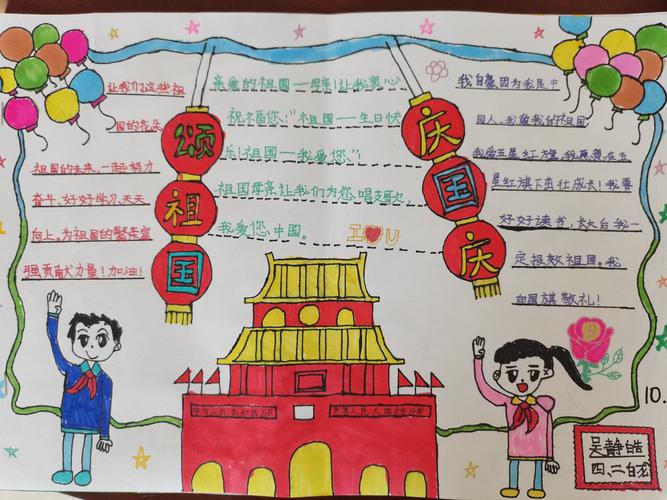 让我们这些祖
国的花朵
祖国的未来,一起努力
奋斗,好好学习,天天
向上。为祖国的繁荣富
强贡献力量!加油!
颂祖国
亲爱的祖国—母亲!让我衷心
祝福您:“祖国—生日快
乐!祖国—我爱您!”
祖国母亲让我们为您唱支歌
我爱您中国。
I U
庆国庆
我自豪因为我是中
国人。我爱我的祖国
我爱五星红旗,我愿意在五
星红旗下茁壮成长!我要
好好读书,长大后我一
定报效祖国。我
向国旗敬礼!
中华人民共和国万岁
世界人民大团结万岁
10.
吴静皓